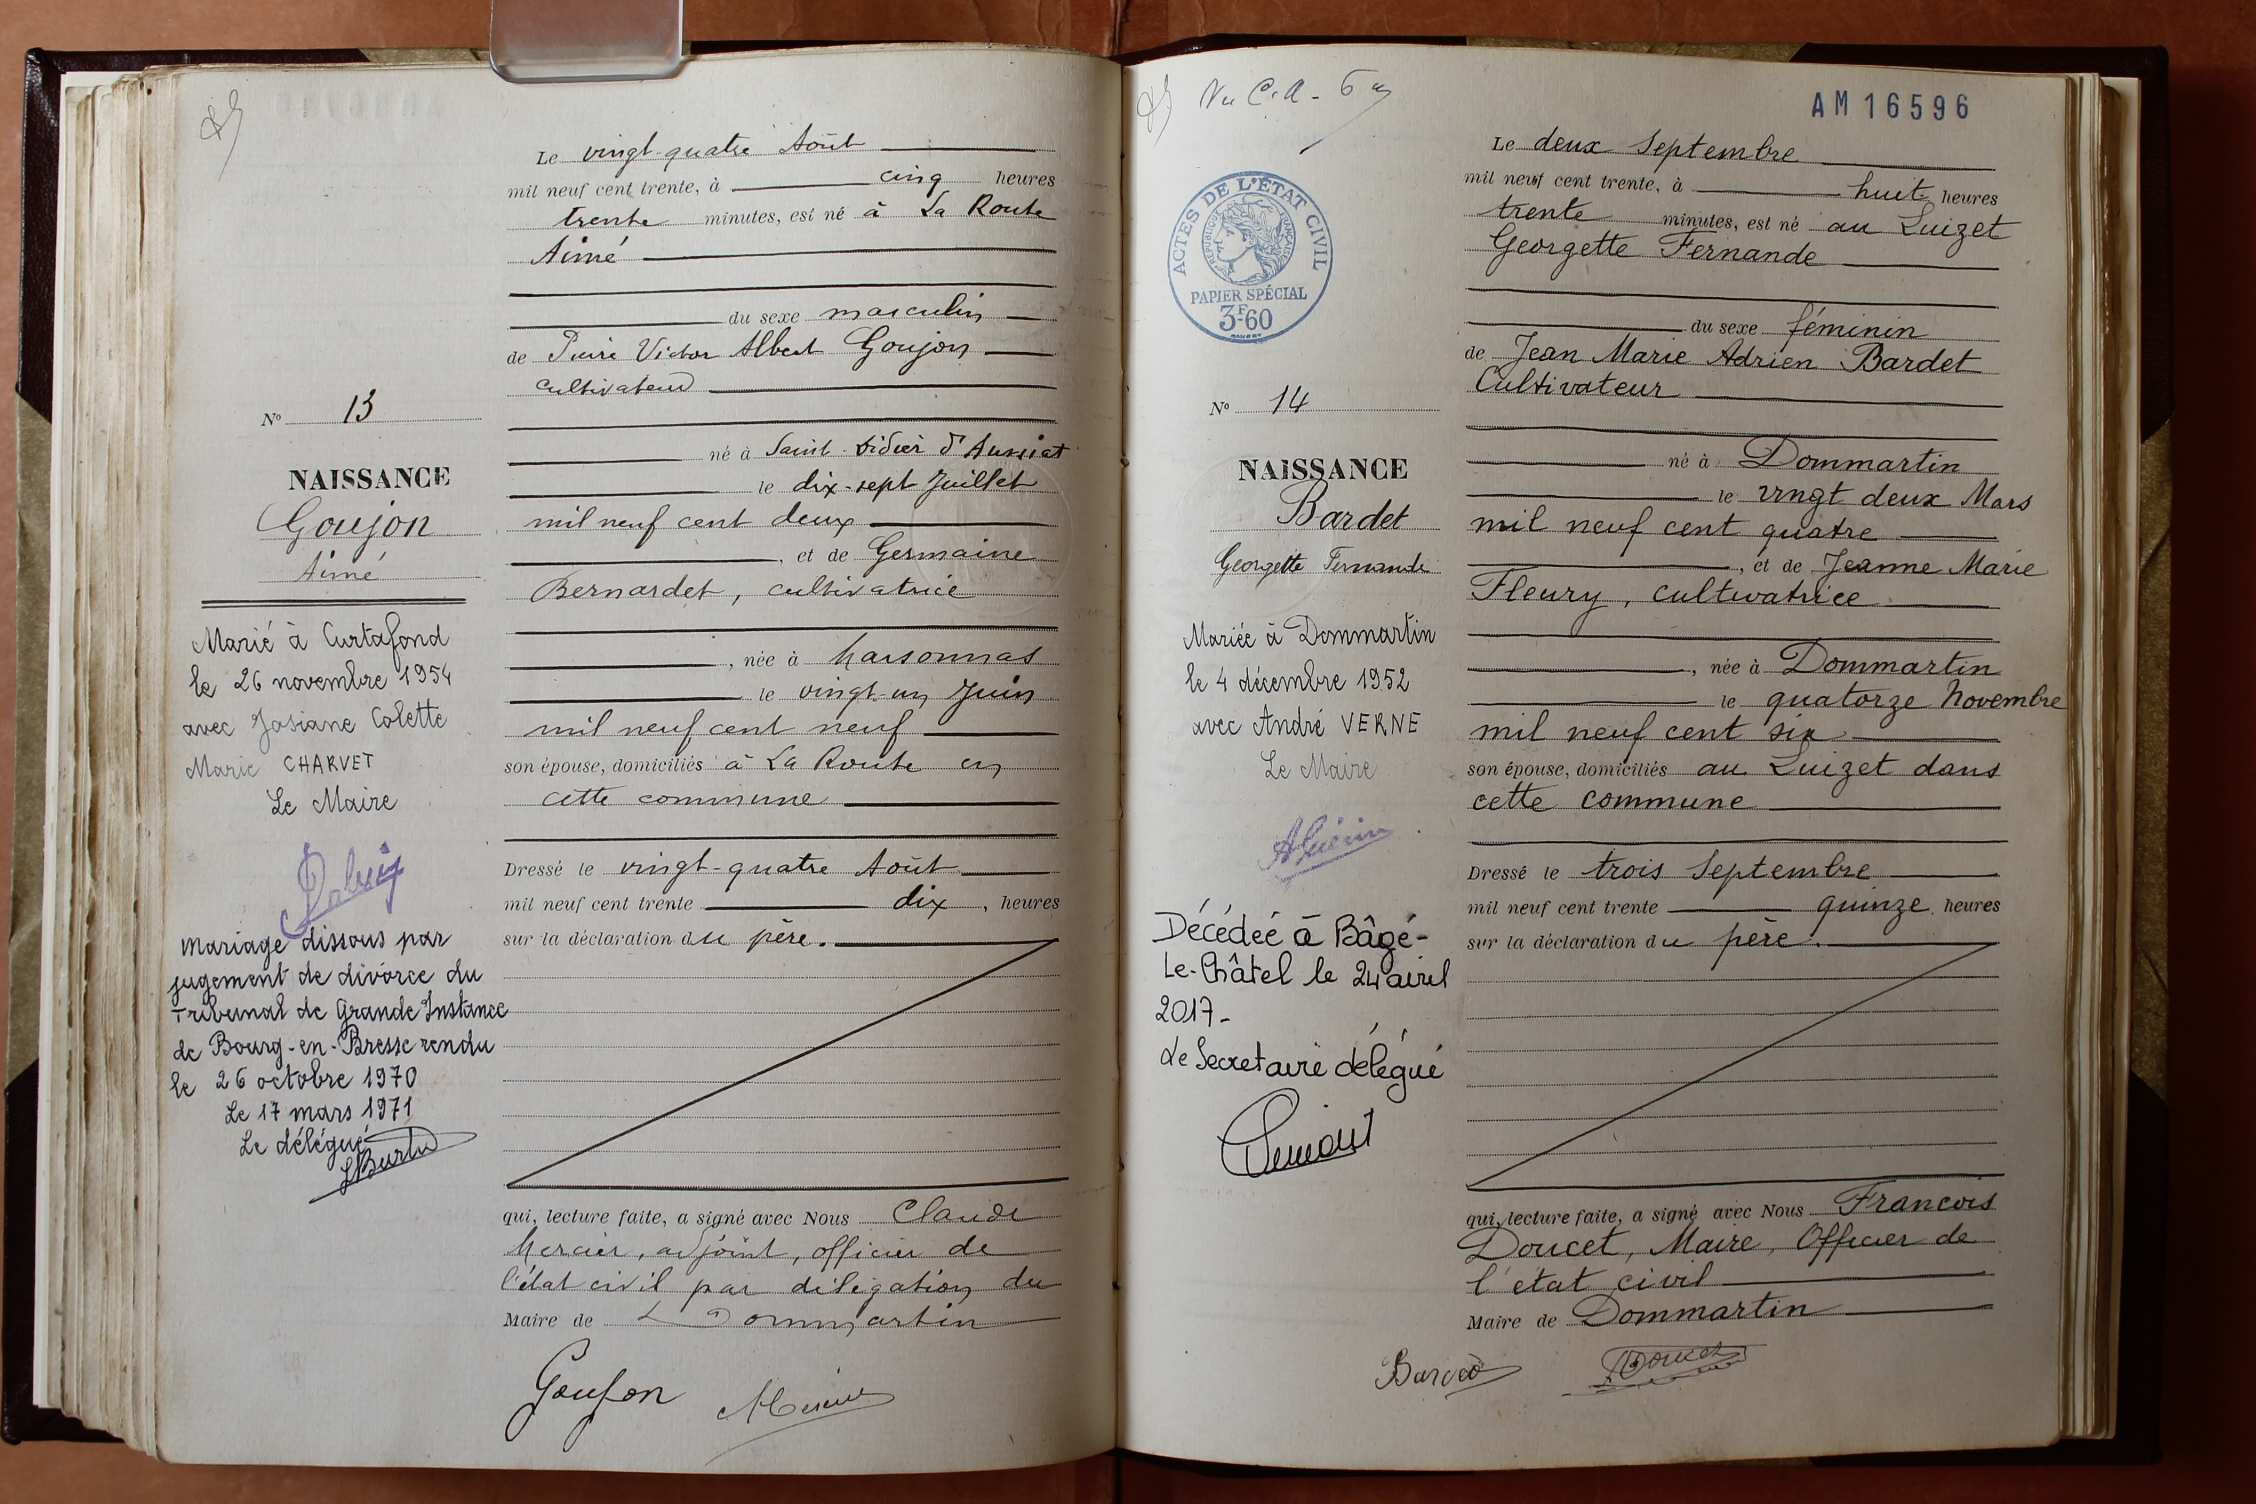 Le vingt-quatre Août
mil neuf cent trente, à cinq heures
trente minutes, est né à La Route
Aimé
du sexe masculin
de Pierre Victor Albert Goujon
cultivateur
né à Saint-Didier d'Aussiat
le dix-sept Juillet
mil neuf cent deux
, et de Germaine
Bernardet, cultivatrice
, née à Marsonnas
le vingt-un Juin
mil neuf cent neuf
son épouse, domiciliés à La Route en
cette commune
Dressé le vingt-quatre Août
mil neuf cent trente dix, heures
sur la déclaration du père.
qui, lecture faite, a signé avec Nous Claude
Mercier, adjoint, officier de
l'état civil par délégation du
Maire de Dommartin
Goujon
N° 13
NAISSANCE
Goujon
Aimé
Marié à Curtafond
le 26 novembre 1954
avec Josiane Colette
Marie CHARVET
Le Maire
Mariage dissous par
jugement de divorce du
Tribunal de Grande Instance
de Bourg-en-Bresse rendu
le 26 octobre 1970
Le 17 mars 1971
Le délégué
Vu
AM16596
ACTES DE L'ÉTAT CIVIL
RÉPUBLIQUE FRANÇAISE
PAPIER SPÉCIAL
3F-60
N° 14
NAISSANCE
Bardet
Georgette Fernande
Mariée à Dommartin
le 4 décembre 1952
avec André VERNE
Le Maire
Décédée à Bâgé-
Le-Châtel le 24 avril
2017-
Le Secretaire délégué
Le deux Septembre
mil neuf cent trente, à huit heures
trente minutes, est né au Luizet
Georgette Fernande
du sexe féminin
de Jean Marie Adrien Bardet
Cultivateur
né à Dommartin
le vingt deux Mars
mil neuf cent quatre
, et de Jeanne Marie
Fleury, cultivatrice
, née à Dommartin
le quatorze Novembre
mil neuf cent six
son épouse, domiciliés au Luizet dans
cette commune
Dressé le trois Septembre
mil neuf cent trente quinze heures
sur la déclaration du père.
qui, lecture faite, a signé avec Nous Francois
Doucet, Maire, Officier de
l'état civil
Maire de Dommartin
Bardet
Doucet